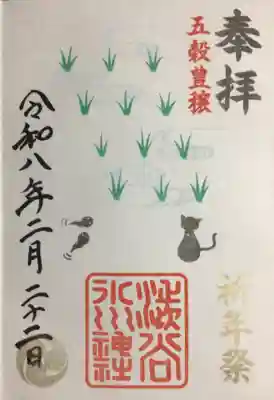 奉拝
五穀豊穣
祈年祭
渋谷
氷川神社
令和八年二月二十二日